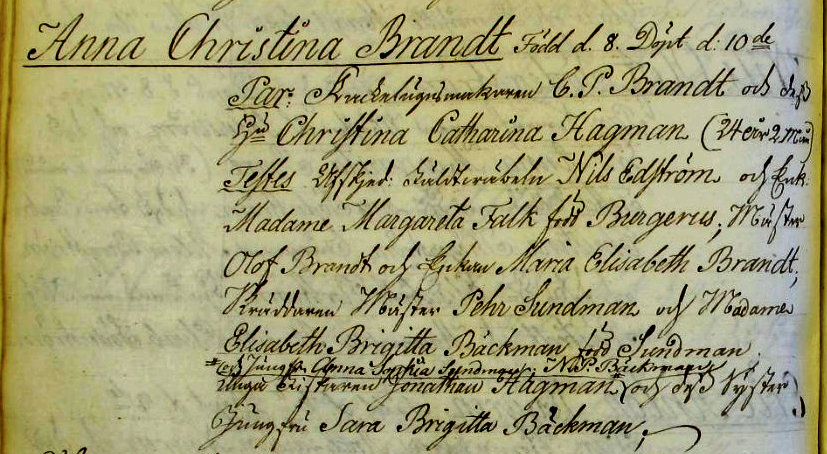 Anna Christina Brandt Född d. 8. Döpt d. 10de
Par: Kackelugnsmakaren C. P. Brandt och dess
Hu Christina Catharina Hagman (24 åir 2 Mån)
Testes Afsked: fäldtwäbeln Nils Edström och Enk.
Madame Margareta Falk född Burgerus, Mäster
Olof Brandt och Enkan Maria Elisabeth Brandt;
Skräddaren Mäster Pehr Sundman och Madame
Elisabeth Brigitta Bäckman född Sundman
och Jungfr Anna Sophia Sundman; N. P. Bäckmans
unga Jonathan Hagman (och dess Syster)
Jungfru Sara Brigitta Bäckman,